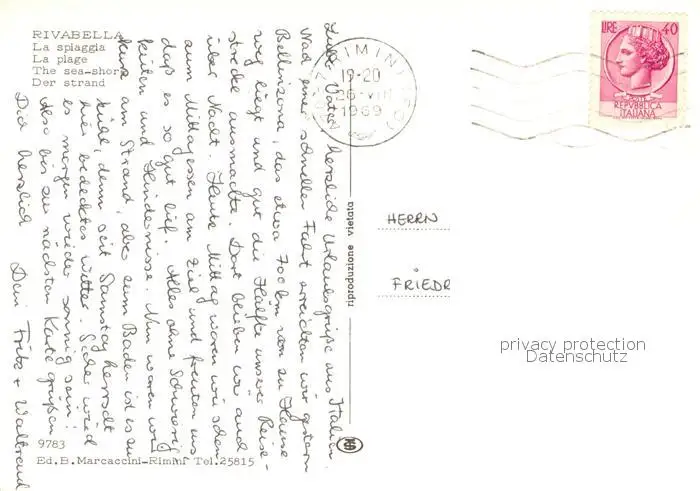 RIVABELLA
La spiaggia
La plage
The sea-shore
Der strand
RIMINI
19-20
26-VIII
1969
LIRE 40
REPVBBLICA
ITALIANA
Lieber Vater, herzliche Urlaubsgrüße aus Italien
Nach einer schneller Fahrt erreichten wir gestern
Bellinzona, das etwa 700 km von zu Hause
weg liegt und gut die Hälfte unserer Reise-
strecke ausmachte. Dort blieben wir auch
über Nacht. Heute Mittag waren wir schon
zum Mittagessen am Ziel und freuten uns
daß es so gut lief. Alles ohne Schwierig
keiten und Hindernisse. Nun waren wir
kurz am Strand, aber zum Baden ist es zu
kühl, denn seit Samstag herrscht
hier bedecktes Wetter. Sicher wird
es morgen wieder sonnig sein!
Also bis zur nächsten Karte grüßen
Dich herzlich Dein Fritz + Waltraud
riproduzione vietata
HERRN
FRIEDR
privacy protection
Datenschutz
9783
Ed. B. Marcaccini-Rimini Tel. 25815